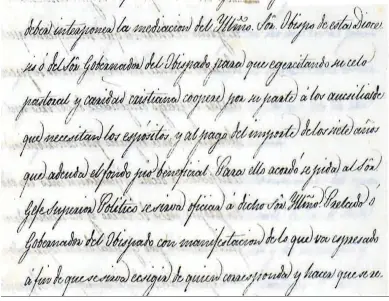 deber interponer la mediacion del Yllño. Sôr. Obispo de esta Dioce
sis ó del Sôr Gobernador del Obispado para que egercitando su celo
pastoral y caridad cristiana coopere por su parte á los ausilios de
que necesitan los espósitos, y al pago del importe de los siete años
que adeuda el fondo pio beneficial. Para ello acordó se pida al Sôr
Gefe Superior Politico se sirva oficiar á dicho Sôr Yllño. Prelado ó
Gobernador del Obispado con manifestacion de lo que va espresado
á fin de que se sirva ecsigir de quien corresponda y hacer que se re-